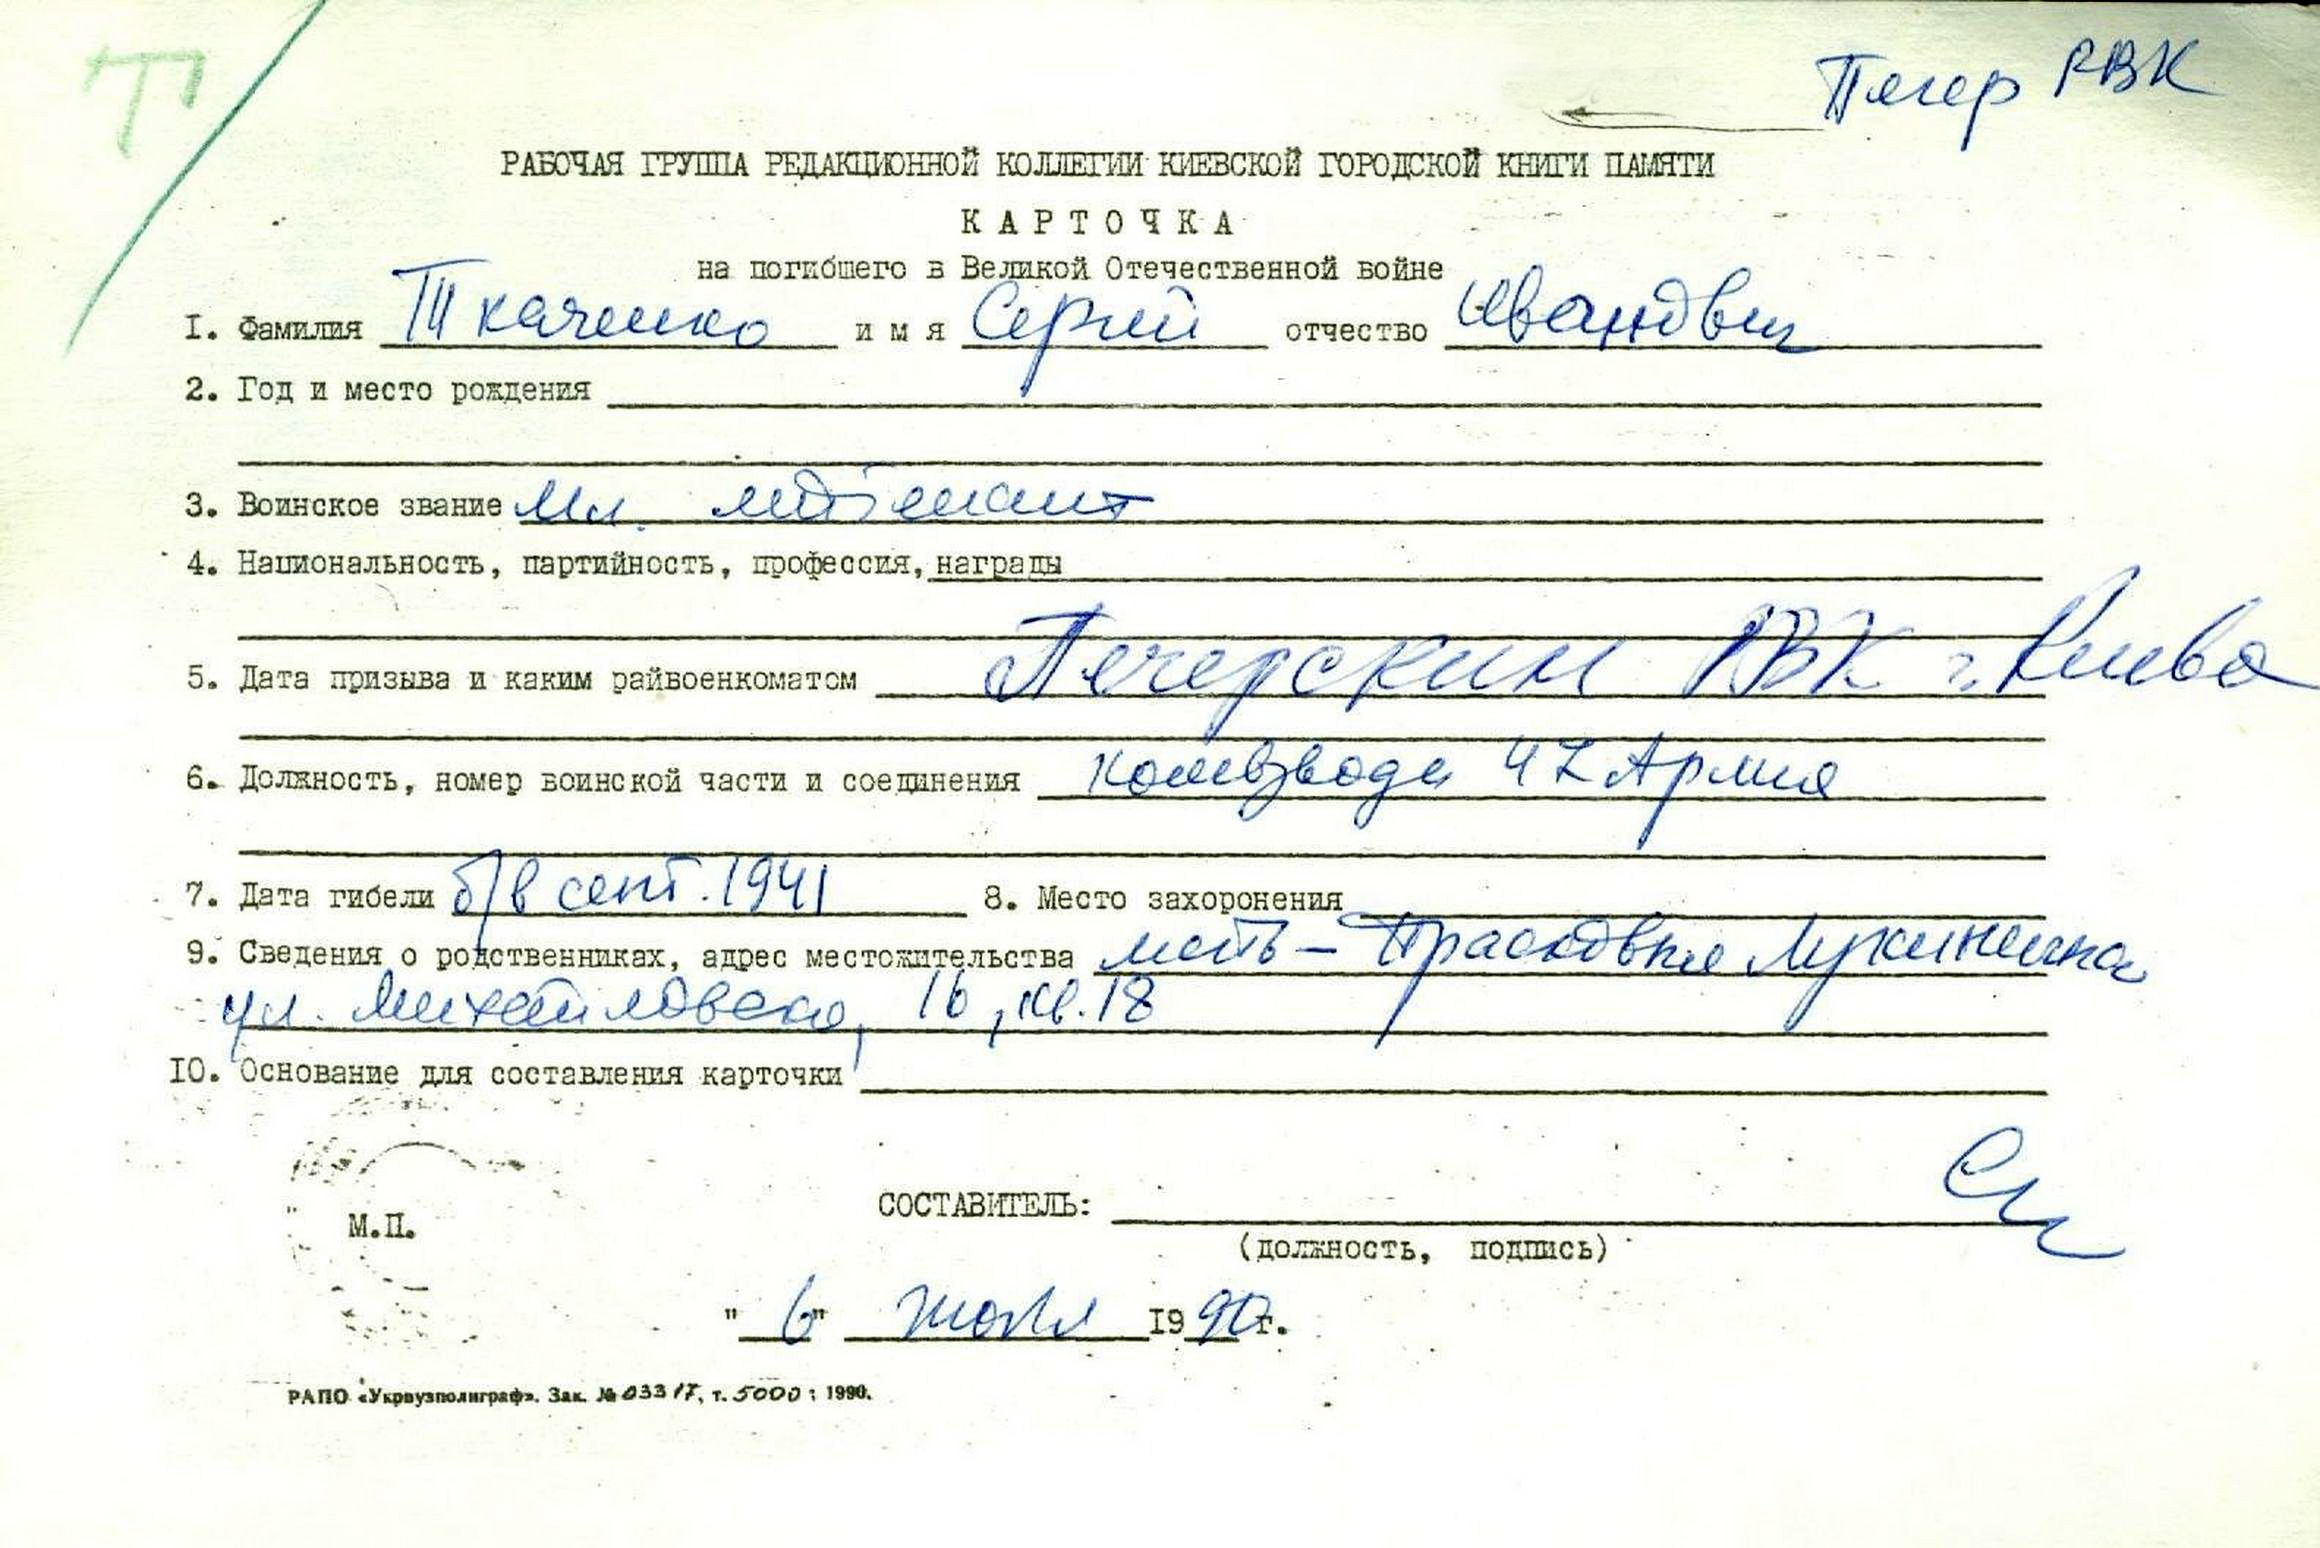 Т
Печер РВК
РАБОЧАЯ ГРУППА РЕДАКЦИОННОЙ КОЛЛЕГИИ КИЕВСКОЙ ГОРОДСКОЙ КНИГИ ПАМЯТИ
КАРТОЧКА
на погибшего в Великой Отечественной войне
I. Фамилия Ткаченко имя Сергий отчество Иванович
2. Год и место рождения
3. Воинское звание Мл. лейтенант
4. Национальность, партийность, профессия, награды
5. Дата призыва и каким райвоенкоматом Печерским РВК г. Киева
6. Должность, номер воинской части и соединения комвзвода 47 Армия
7. Дата гибели б/в сент. 1941 8. Место захоронения
9. Сведения о родственниках, адрес местожительства мать - Прасковья Лукинична
ул. Михайловская, 16, кв. 18
IO. Основание для составления карточки
М.П.
СОСТАВИТЕЛЬ:
(должность, подпись)
"6" июля 1990г.
РАПО «Укрвузполиграф». Зак. № 03317, т. 5000 : 1990.